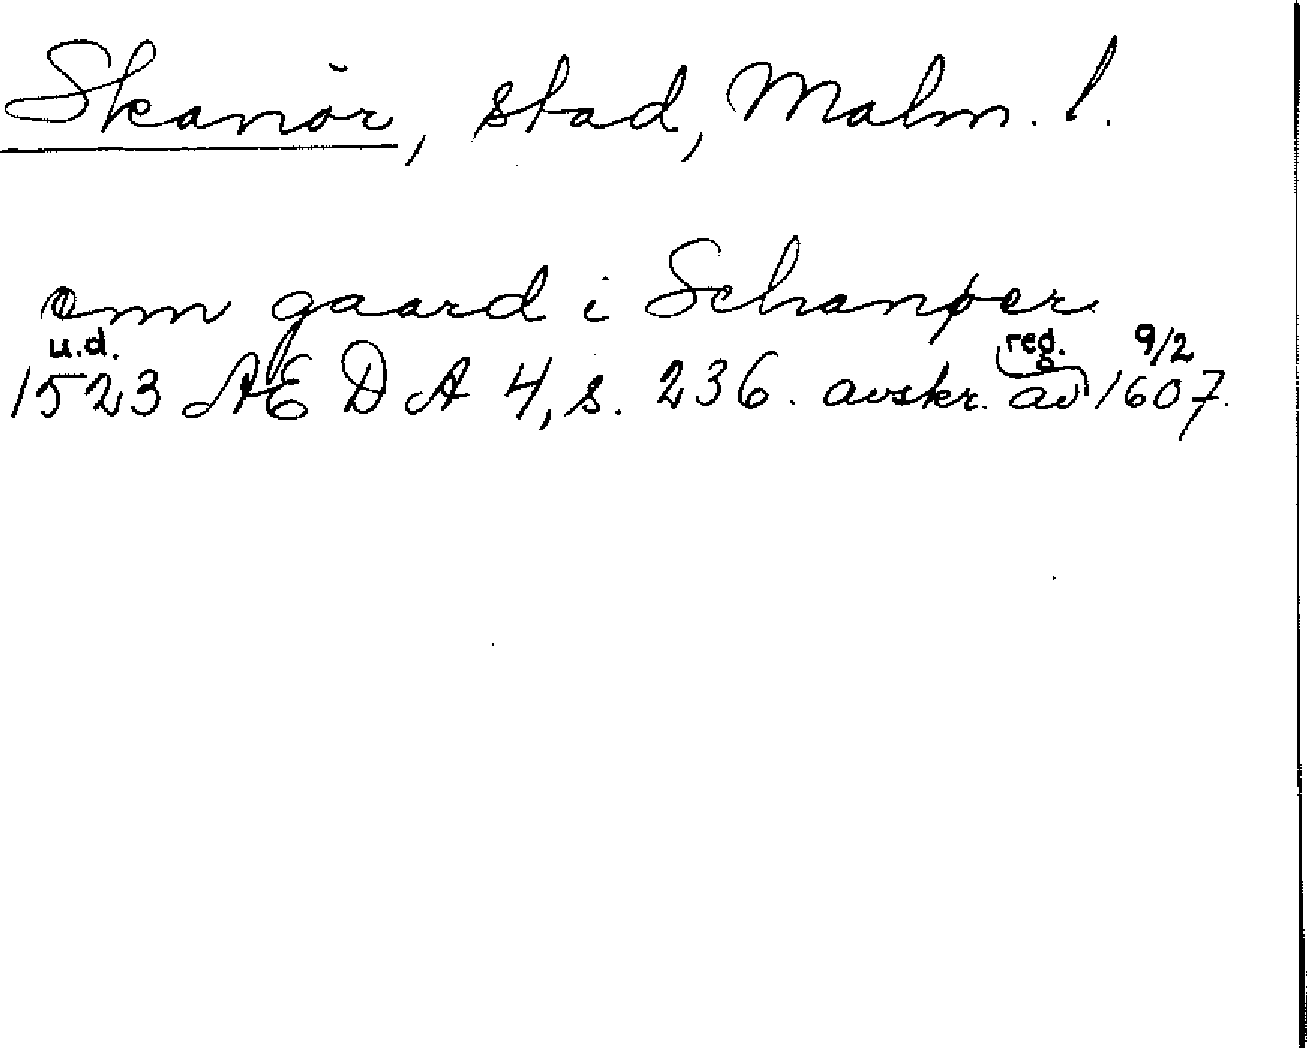 Skanör, stad, Malm. l.
enn gaard i Schanøer
u.d. reg. 9/2
1523 ÆDA 4, s. 236. avskr. av 1607.